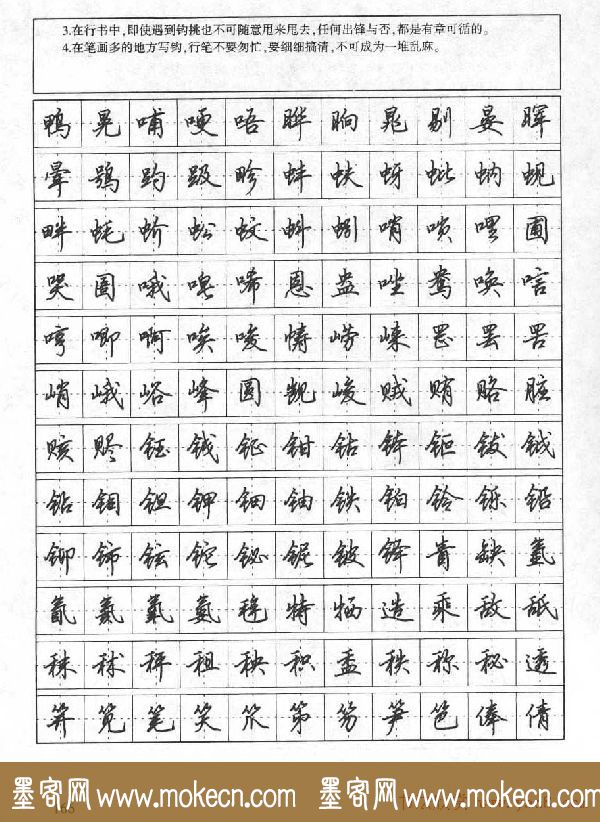 3.在行书中,即使遇到钩挑也不可随意甩来甩去,任何出锋与否,都是有章可循的。
4.在笔画多的地方写钩,行笔不要匆忙,要细细搞清,不可成为一堆乱麻。
鸭 晃 哺 哽 唔 晔 晌 晁 剔 晏 晖
晕 鸮 趵 趿 畛 蚌 蚨 蚜 蚍 蚋 蚬
畔 蚝 蚧 蚣 蚊 蚪 蚓 哨 唢 嘿 圃
哭 圄 哦 唏 恩 盎 唑 鸯 唤 唁
哼 唧 啊 唉 唆 帱 崂 崃 罡 罢 罟
峭 峨 峪 峰 圆 觊 峻 贼 贿 赂 脏
赅 赆 钰 钱 钲 钳 钴 钵 钷 钹 钺
钻 钼 钽 钾 钿 铀 铁 铂 铃 铄 铅
铆 铈 铉 铊 铋 铌 铍 铎 眚 缺 氩
氤 氦 氧 氨 毪 特 牺 造 乘 敌 舐
秣 秫 秤 租 秧 积 盉 秩 称 秘 透
笄 笕 笔 笑 笊 第 笏 笋 笆 俸 倩
墨客网 www.mokecn.com 墨客网 www.mokecn.com
168